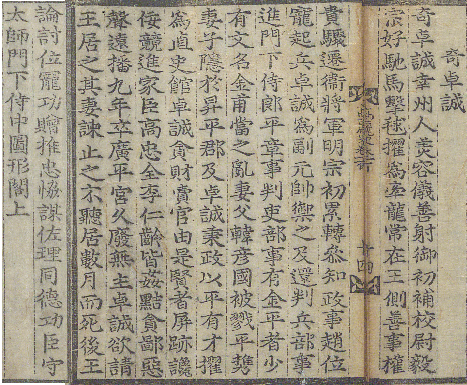 奇卓誠
奇卓誠幸州人美容儀善射御初補校尉毅
宗好馳馬擊毬擢爲牽龍常在王側善事權
十四
貴驟遷衛將軍明宗初累轉叅知政事趙位
寵起兵卓誠爲副元帥禦之及還判兵部事
進門下侍郎平章事判吏部事有金平者少
有文名金甫當之亂妻父韓彦國被戮平携
妻子隱於昇平郡及卓誠秉政以平有才擢
爲直史館卓誠貪財賣官由是賢者屛跡讒
佞競進家臣高忠全李仁齡皆姦黠貪鄙惡
聲遠播九年卒廣平宮久廢無主卓誠欲請
王居之其妻諫止之不聽居數月而死後王
論討位寵功贈推忠協謀佐理同德功臣守
太師門下侍中圖形閣上